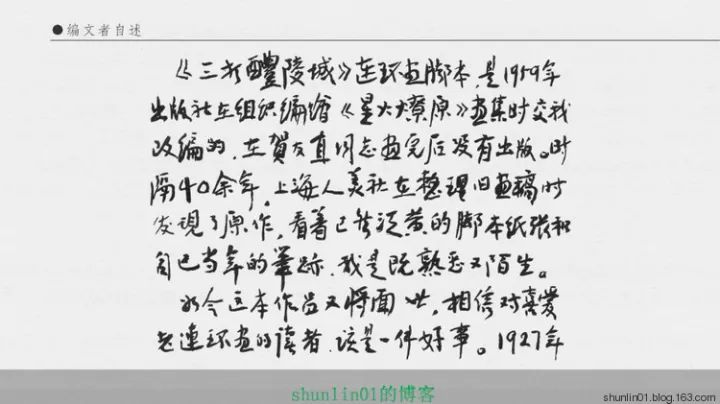 ●编文者自述
《三打醴陵城》连环画脚本，是1959年
出版社在组织编绘《星火燎原》画集时交我
改编的，在贺友直同志画完后没有出版。时
隔40余年，上海人美社在整理旧画稿时
发现了原作，看着已发黄的脚本纸张和
自己当年的笔迹，我是既熟悉又陌生。
如今这本作品又将面世，相信对喜爱
老连环画的读者，该是一件好事。1927年
shunlin01的博客
shunlin01.blog.163.com